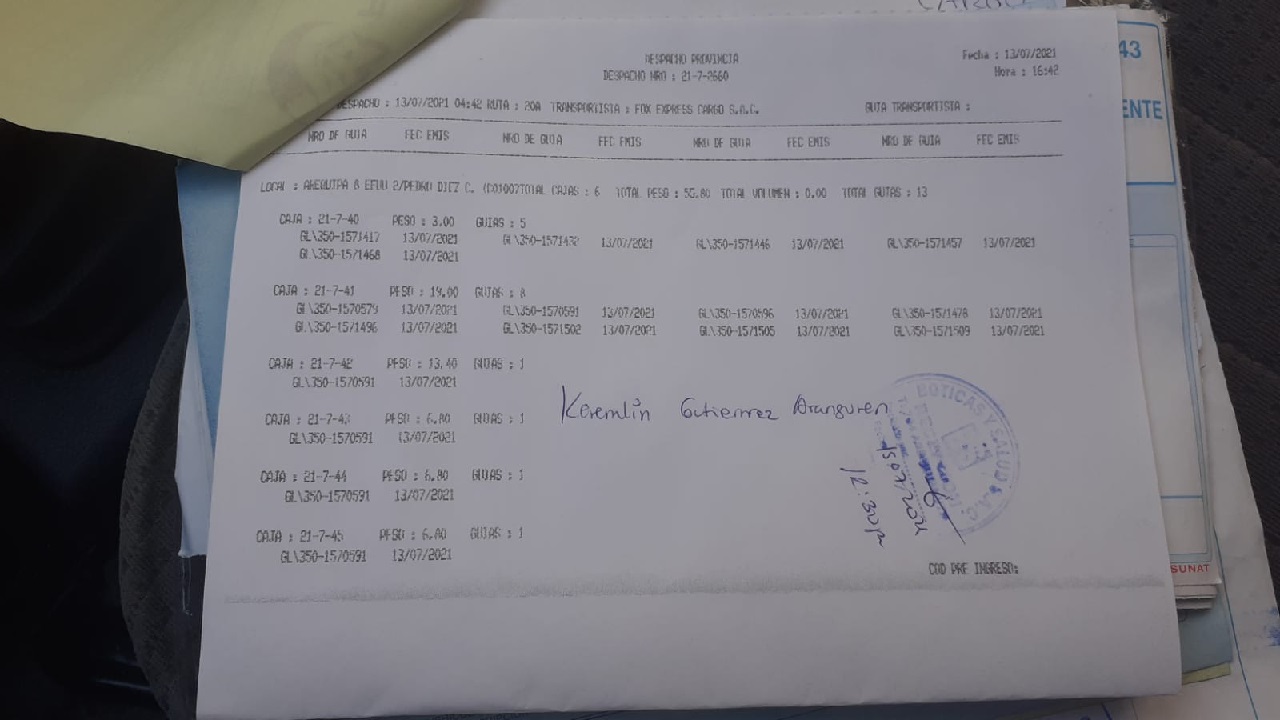 DESPACHO PROVINCIA
DESPACHO NRO : 21-7-2660
Fecha : 13/07/2021
Hora : 16:42
DESPACHO : 13/07/2021 04:42 RUTA : 20A TRANSPORTISTA : FOX EXPRESS CARGO S.A.C. GUIA TRANSPORTISTA :
NRO DE GUIA FEC EMIS NRO DE GUIA FEC EMIS NRO DE GUIA FEC EMIS NRO DE GUIA FEC EMIS
LOCAL : AREQUIPA 8 EFUU 2/PEDRO DIEZ C. TOTAL CAJAS : 6 TOTAL PESO : TOTAL VOLUMEN : 0.00 TOTAL GUIAS : 13
CAJA : 21-7-40 PESO : 3.00 GUIAS : 5
GL\350-1571417 13/07/2021 GL\350-1571432 13/07/2021 GL\350-1571446 13/07/2021 GL\350-1571457 13/07/2021
GL\350-1571468 13/07/2021
CAJA : 21-7-41 PESO : 19.00 GUIAS : 8
GL\350-1570579 13/07/2021 GL\350-1570591 13/07/2021 GL\350-1570596 13/07/2021 GL\350-1571478 13/07/2021
GL\350-1571496 13/07/2021 GL\350-1571502 13/07/2021 GL\350-1571505 13/07/2021 GL\350-1571509 13/07/2021
CAJA : 21-7-42 PESO : 13.40 GUIAS : 1
GL\350-1570591 13/07/2021
CAJA : 21-7-43 PESO : 6.80 GUIAS : 1
GL\350-1570591 13/07/2021
CAJA : 21-7-44 PESO : 6.80 GUIAS : 1
GL\350-1570591 13/07/2021
CAJA : 21-7-45 PESO : 6.80 GUIAS : 1
GL\350-1570591 13/07/2021
Keremlin Gutierrez Aranguren
BOTICAS Y SALUD S.A.C.
15/07/2021
COD PRE INGRESO:
43
ENTE
SUNAT